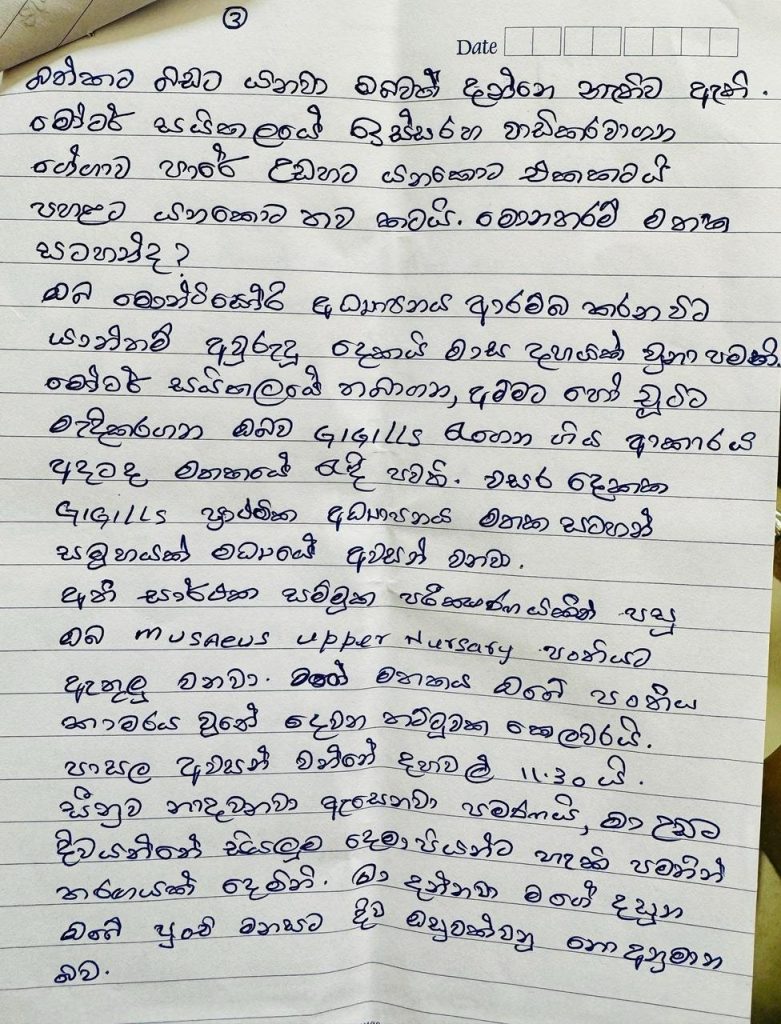 ③
Date
බත්කට බඩට යනවා ඔබවත් දන්නෙ නැතිව ඇති.
මෝටර් සයිකලයේ ඉස්සරහ වාඩිකරවාගන
ගේගාව පාරේ උඩහට යනකොට එකකටයි
පහළට යනකොට තව කටයි. මොනතරම් මතක
සටහන්ද?
ඔබ මොන්ටිසෝරි අධ්‍යාපනය ආරම්බ කරන විට
යාන්තම් අවුරුදු දෙකයි මාස දහයක් වුනා පමණි.
මෝටර් සයිකලයේ තබාගන, අම්මට හෝ චූටිට
මැදිකරගන ඔබව GIGILLS එගෙන ගිය ආකාරය
අදටද මතකයේ රැඳී පවතී. වසර දෙකක
GIGILLS ප්‍රාථමික අධ්‍යාපනය මතක සටහන්
සමුහයක් මධ්‍යයේ අවසන් වනවා.
ඇති සාර්ථක සම්මුක පරීක්ෂණයකින් පසු
ඔබ musaeus upper Nursary පංතියට
ඇතුලු වනවා. මගේ මතකය ඔබේ පංතිය
කාමරය වුනේ දෙවන තට්ටුවක කෙලවරයි.
පාසල අවසන් වන්නේ දහවල් 11.30 යි.
සීනුව නාදවනවා ඇසෙනවා පමණයි, මා උඩට
දිවයන්නේ සියලුම දෙමාපියන්ට හැකි පමනින්
තරගයක් දෙමිනි. මා දන්නවා මගේ දසුන
ඔබේ පුංචි මනසට දිව ඔසුවක්වනු නොඅනුමාන
බව.